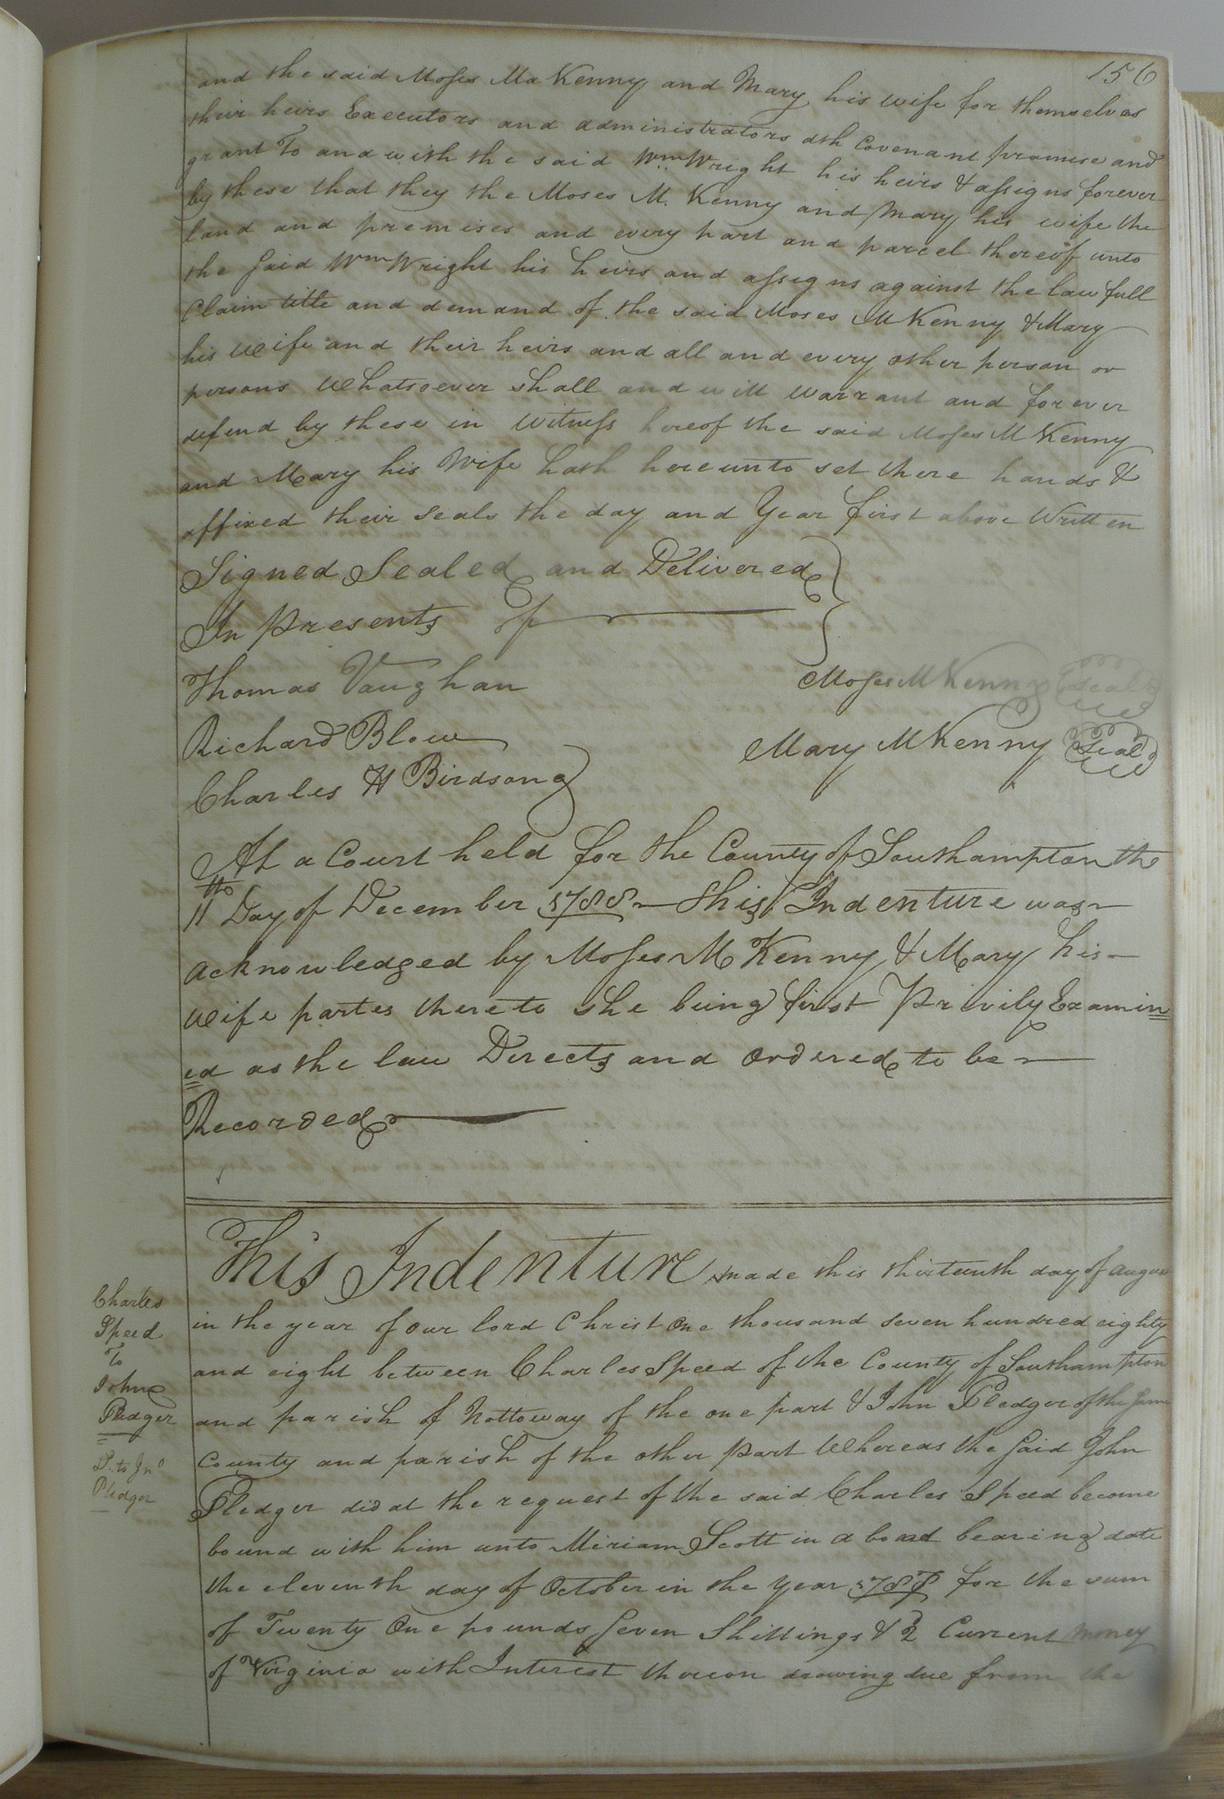 156
and the said Moses Mc Kenny and Mary his wife for themselves
their heirs Executors and administrators dth Covenant promise and
grant To and with the said Wm. Wright his heirs & assigns forever
by these that they the Moses M. Kenny and Mary his wife the
land and premises and every part and parcel thereof unto
the said Wm Wright his heirs and assigns against the lawfull
Claim title and demand of the said Moses M Kenny & Mary
his Wife and their heirs and all and every other person or
persons Whatsoever shall and will warrant and forever
defend by these in Witness hereof the said Moses M Kenny
and Mary his Wife hath hereunto set there hands &
affixed their Seals the day and Year first above Written
Signed Sealed and Delivered
In Presents of
Thomas Vaughan Moses M Kenny Seal
Richard Blow Mary M Kenny Seal
Charles H Birdsong
At a Court held for the County of Southampton the
11th Day of December 1788 This Indenture was
acknowledged by Moses M Kenny & Mary his
wife partes thereto she being first Privily Examin
ed as the law Directs and ordered to be
Recorded
This Indenture made this thirteenth day of August
in the year of our lord Christ One thousand seven hundred eighty
and eight between Charles Speed of the County of Southampton
and parish of Nottoway of the one part & John Pledger of the same
County and parish of the other part Whereas the said John
Pledger did at the request of the said Charles Speed become
bound with him unto Miriam Scott in a bond bearing date
the eleventh day of October in the Year for the sum
of Twenty One pounds seven Shillings & Current money
of Virginia with Interest thereon drawing due from the
Charles
Speed
To
John
Pledger
D. to Jno
Pledger